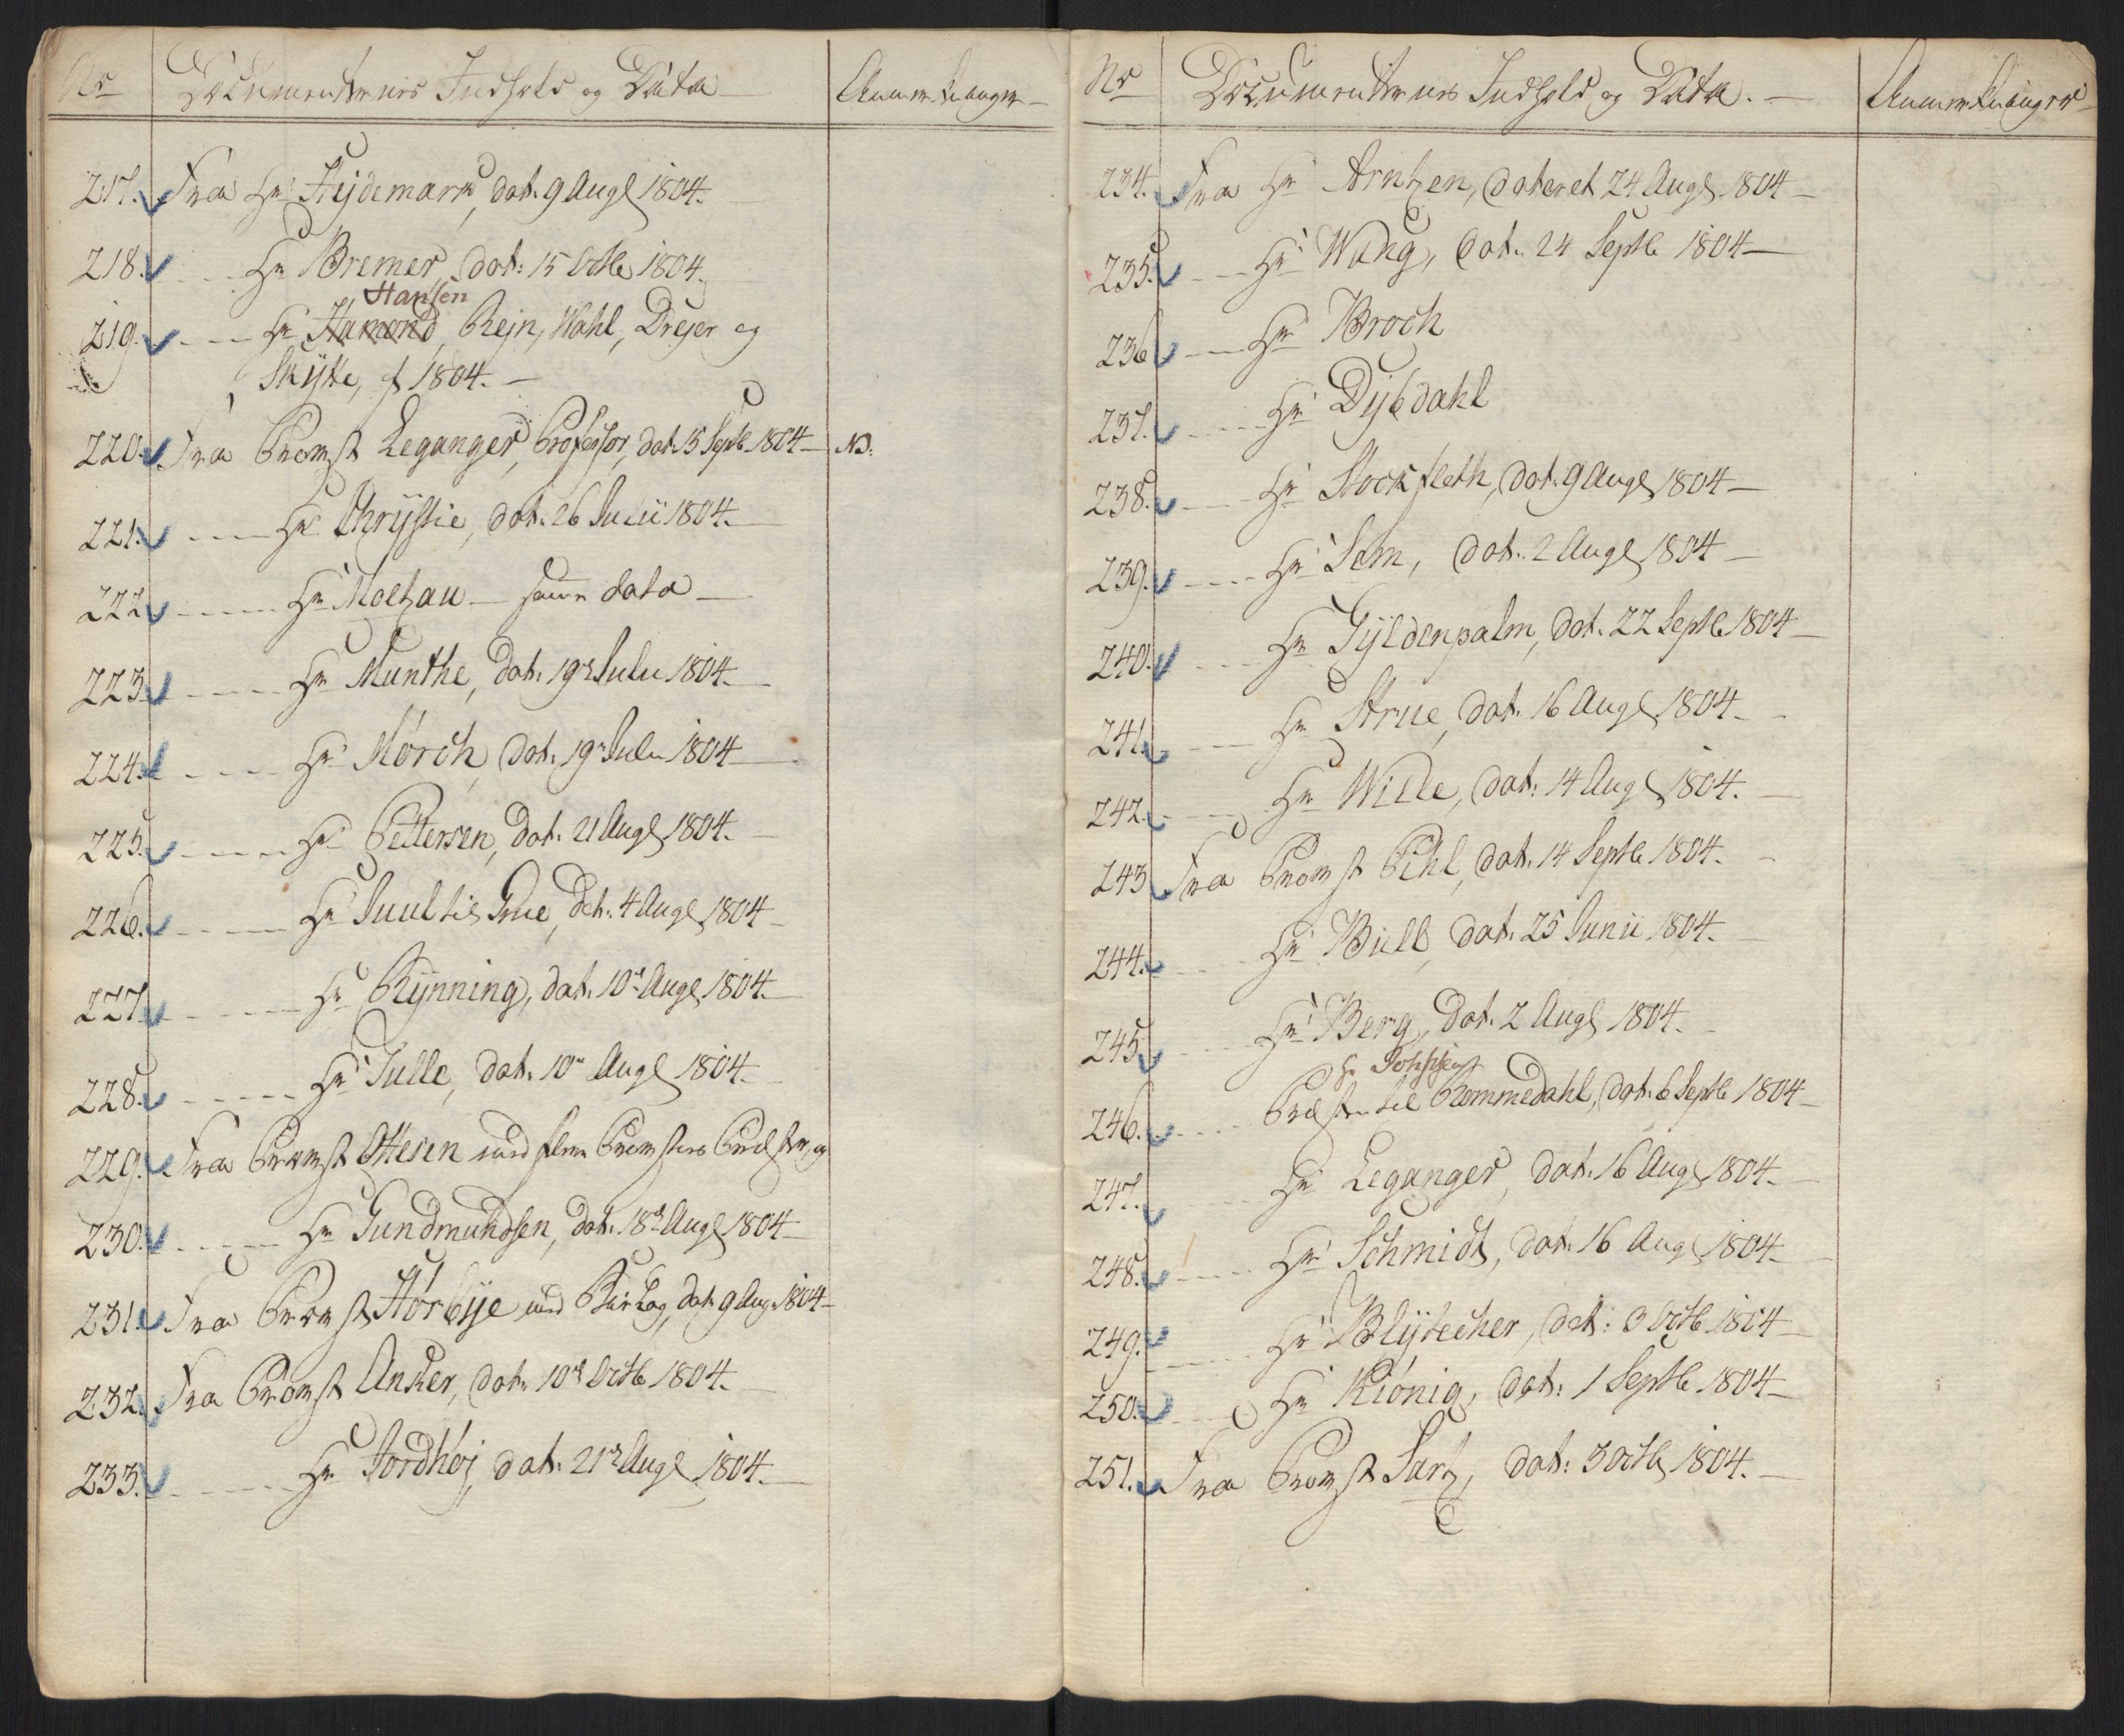 No Documenternes Indhold og Data Anmerkninger
217. Fra Hr Heydemark, dat. 9 Augl 1804.
218. Hr Bremer, dat: 15 Octb 1804.
Hansen
219. Hr Hamond, Rejn, Wahl, Drejer og
Skytte, f 1804.
220. Fra Provst Leganger, Professor, dat. 15 Septb 1804 NB.
221. Hr Chrystie, dat. 26 Julii 1804.
222. Hr Moltzau samme data
223. Hr Munthe, dat. 19r Julii 1804.
224. Hr Mørch, dat. 19r Julii 1804
225. Hr Pettersen, dat. 21 Augl 1804.
226. Hr Juul til Grue, dat. 4 Augl 1804
227. Hr Rynning, dat. 10d Augl 1804.
228. Hr Tulle, dat. 10d Augl 1804.
229. Fra Provst Ottesen med flere Provstiers Præster, og
230. Hr Gundmundsen, dat. 18d Augl 1804
231. Fra Provst Hørbye med Bielag, dat. 9 Aug. 1804
232. Fra Provst Anker, dat. 10d Octb 1804.
233. Hr Jordhøj, dat: 21d Augl 1804.
No Documenternes Indhold og Data. Anmerkninger
234. Fra Hr Arntzen, dateret 24 Augl 1804
235. Hr Wang, dat. 24 Septb 1804
236 Hr Broch
237. Hr Dybdahl
238. Hr Stockfleth, dat. 9 Augl 1804
239. Hr Sem, dat. 2 Augl 1804
240. Hr Gyldenpalm, dat. 22 Septb 1804
241. Hr Strue, dat. 16 Augl 1804.
242. Hr Wille, dat. 14 Augl 1804.
243 Fra Provst Pihl, dat. 14 Septb 1804.
244. Hr Bull, dat. 25 Junii 1804.
245. Hr Berg, dat. 2 Augl 1804.
Hr
246. Præsten til Rommedahl, dat. 6 Septb 1804
247. Hr Leganger, dat. 16 Augl 1804.
248. Hr Schmidt, dat. 16 Augl 1804
249. Hr Blytecher, dat: 3 Octb 1804
250. Hr Kiønig, dat: 1 Septb 1804
251. Fra Provst Sartz, dat: 3 Octb 1804.